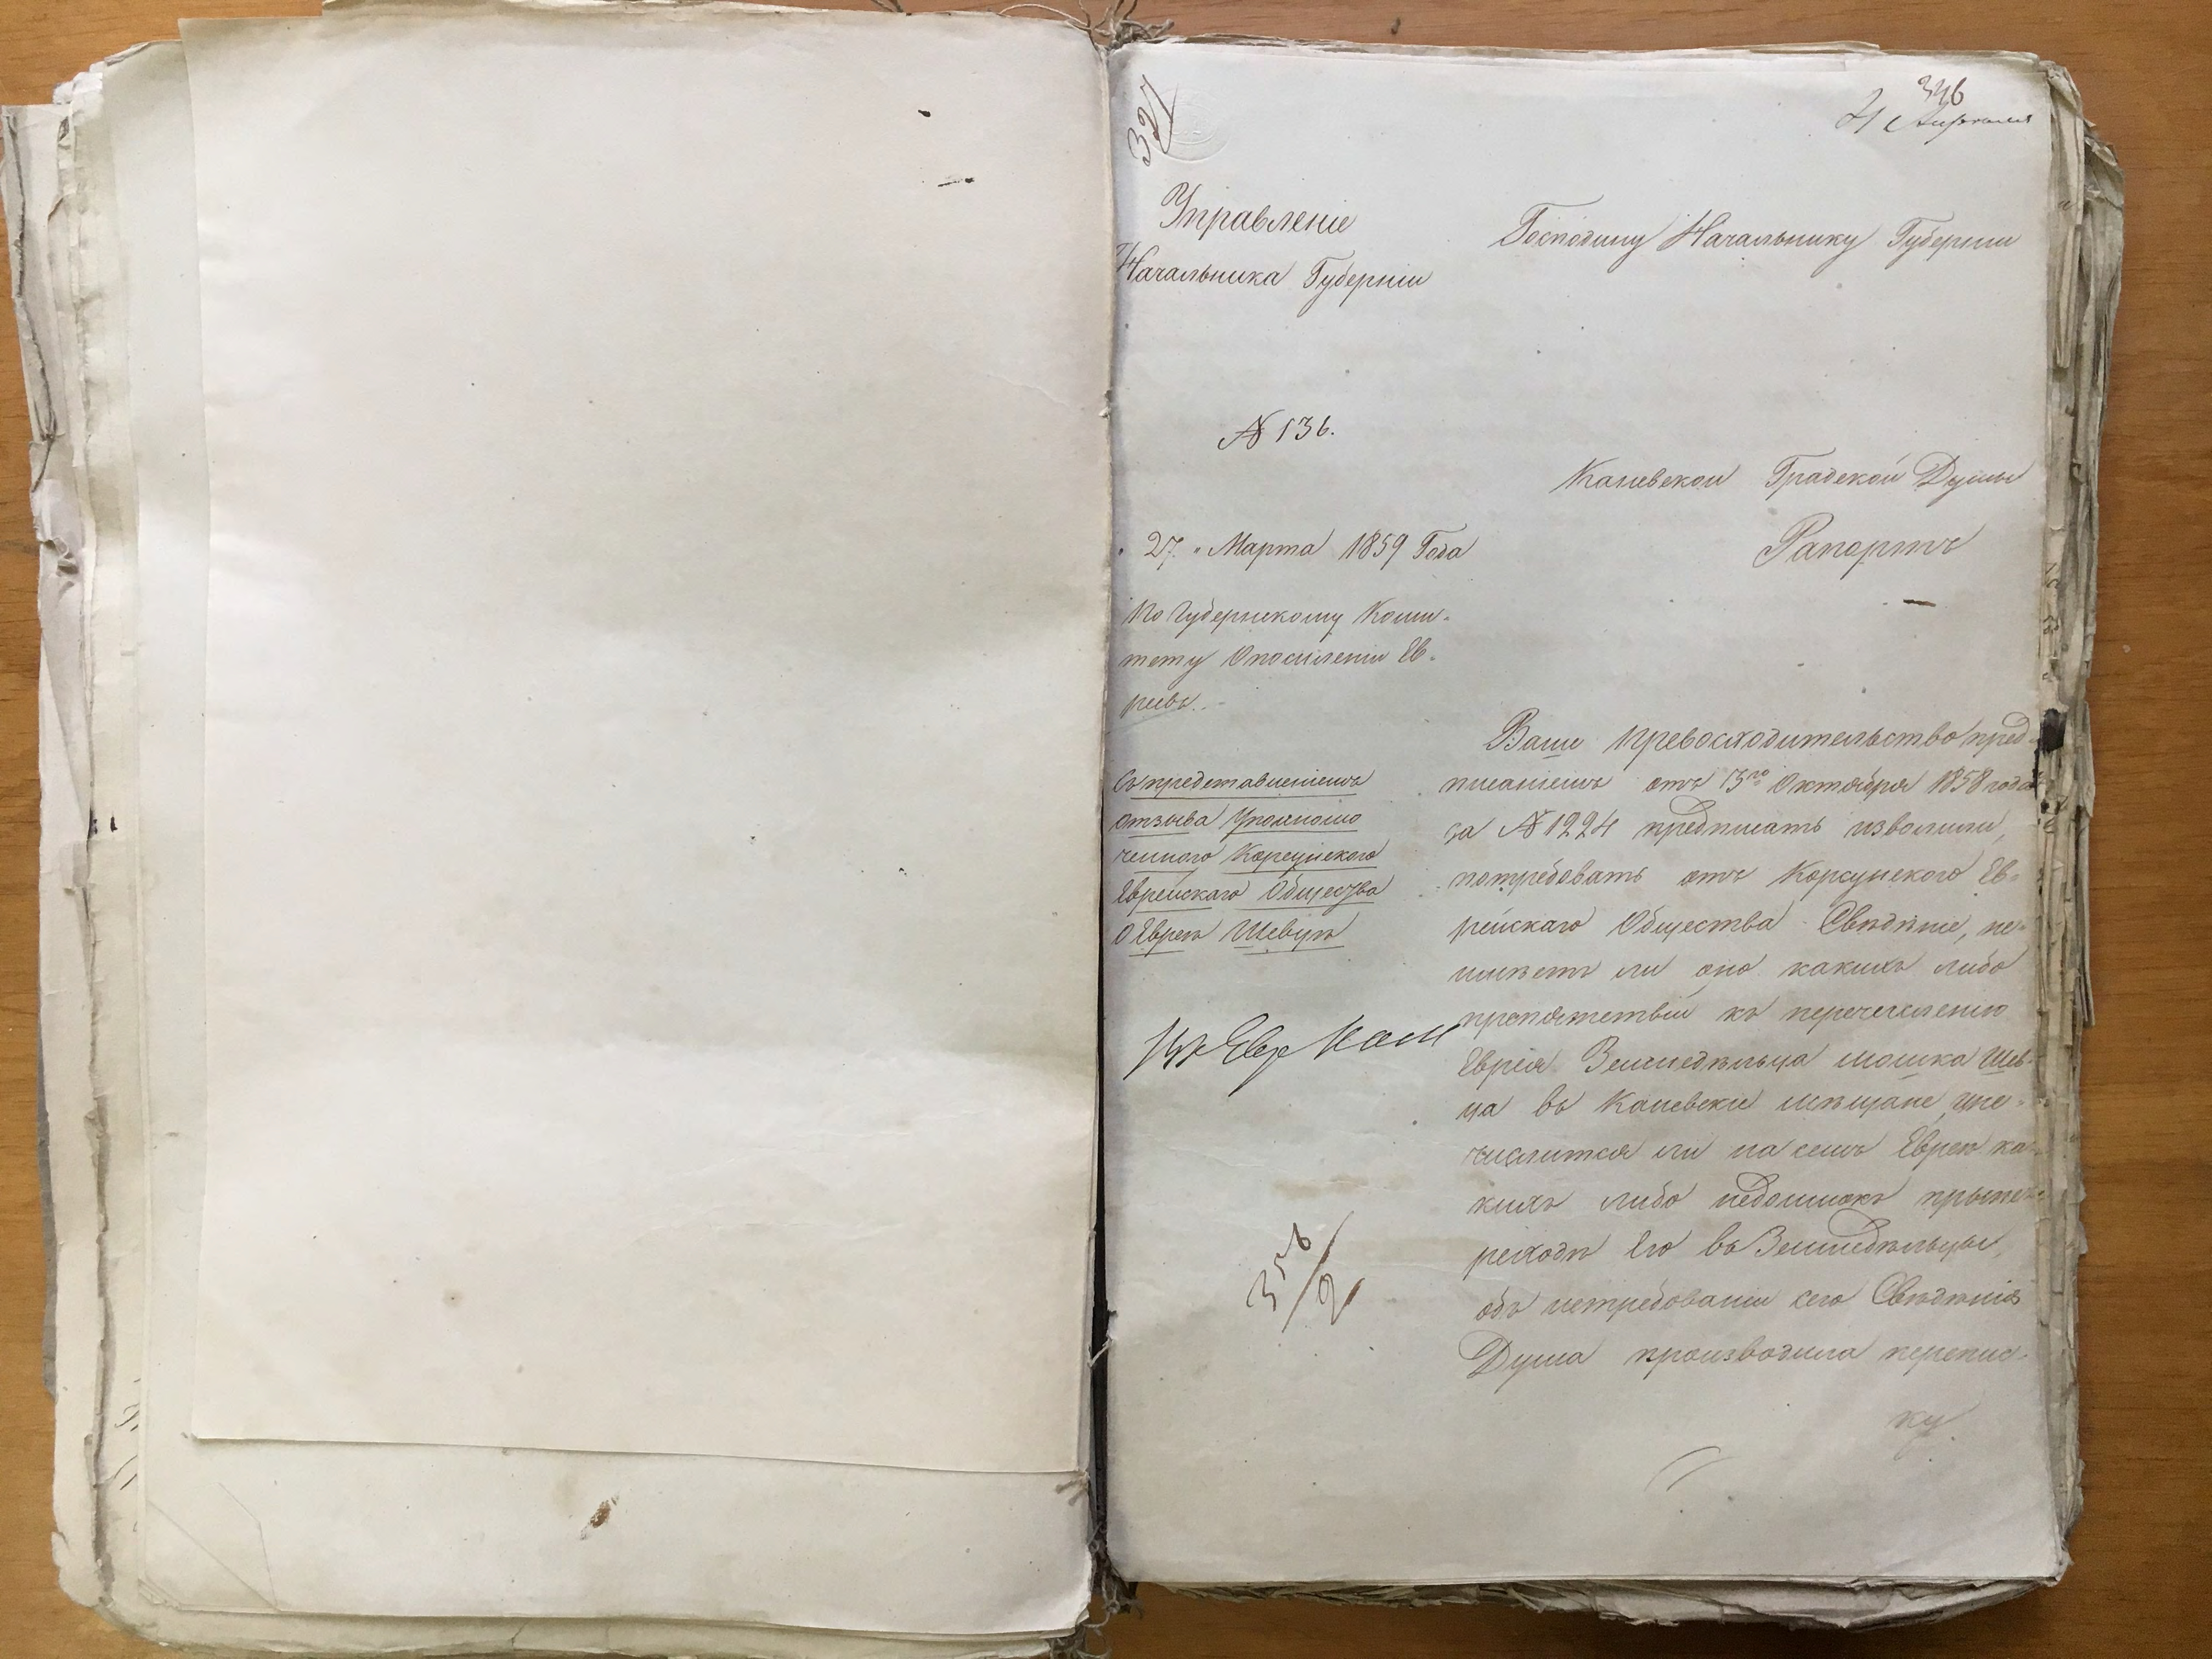 327
346
4 Апреля
Управленіе
Начальника Губерніи
Господину Начальнику Губерніи
№ 136.
Каневской Градской Думы
27 " Марта 1859 Года
Рапортъ
По Губернскому Коми-
тету Опоселеніи Ев-
реевъ.
Съ представленіемъ
отзыва Уполномо
ченного Корсунского
Еврейскаго Общества
О Евреѣ Шевцѣ
Ваше Превосходительство пред-
писаніемъ отъ 13го Октября 1858 года
за № 1224 предписать изволили,
потребовать отъ Корсунского Ев-
рейскаго Общества Свѣдѣніе, не-
имѣетъ ли оно какихъ либо
препятствій къ перечисленію
Еврея Земледѣльца Мошка Шев-
ца въ Каневски мѣщане, и не-
числится ли на семъ Евреѣ ка-
кихъ либо недоимокъ прыпе-
реходѣ Его въ Земледѣльцы,
объ истребованіи сего Свѣдѣнія
Дума производила перепис-
ку